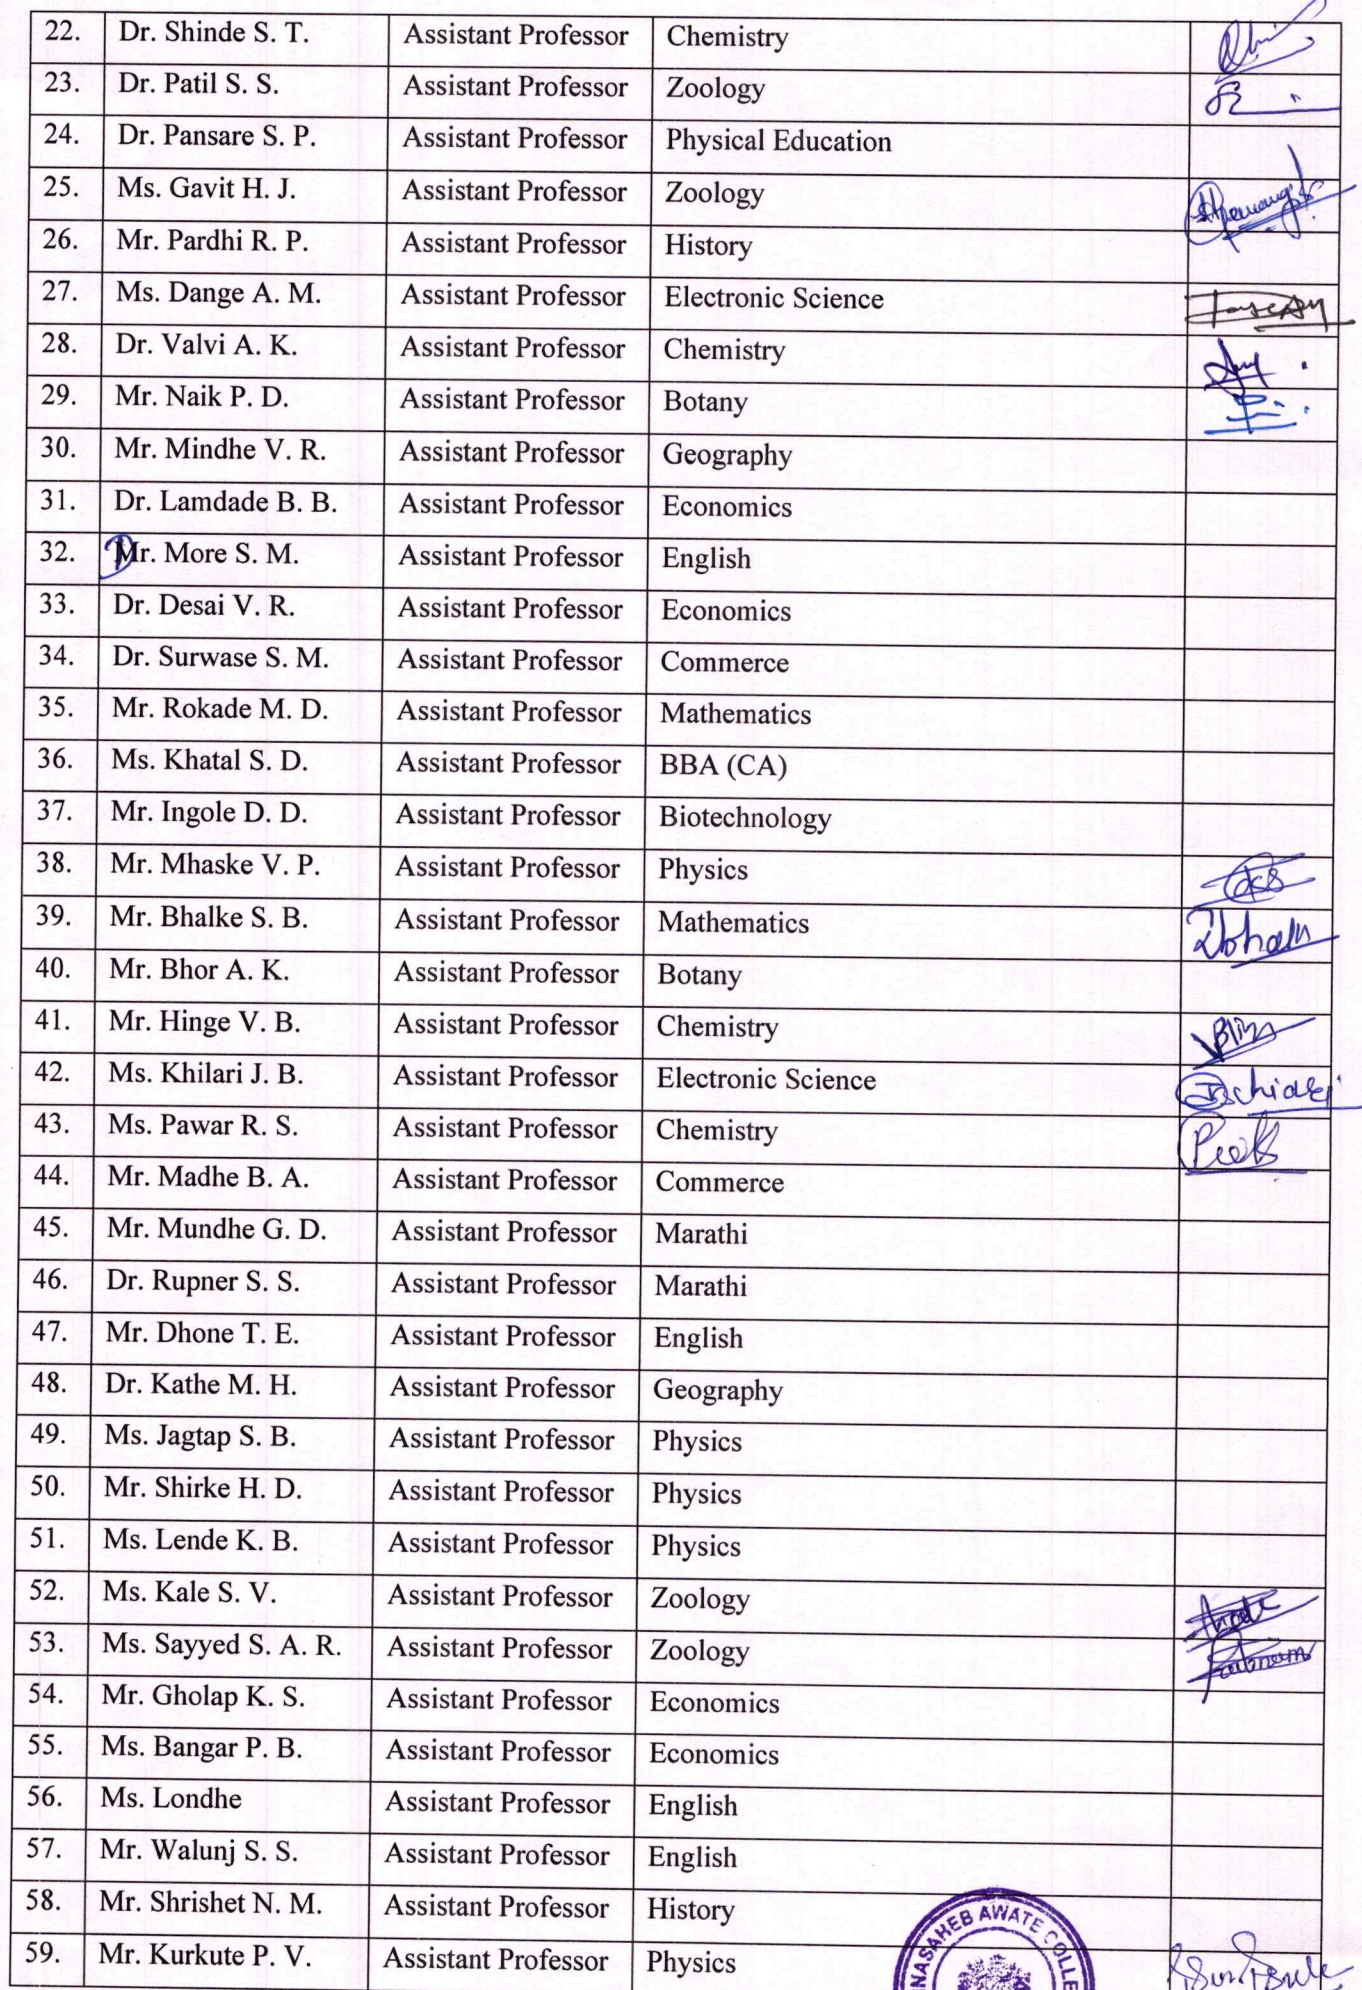 22. Dr. Shinde S. T. Assistant Professor Chemistry
23. Dr. Patil S. S. Assistant Professor Zoology
24. Dr. Pansare S. P. Assistant Professor Physical Education
25. Ms. Gavit H. J. Assistant Professor Zoology
26. Mr. Pardhi R. P. Assistant Professor History
27. Ms. Dange A. M. Assistant Professor Electronic Science
28. Dr. Valvi A. K. Assistant Professor Chemistry
29. Mr. Naik P. D. Assistant Professor Botany
30. Mr. Mindhe V. R. Assistant Professor Geography
31. Dr. Lamdade B. B. Assistant Professor Economics
32. Mr. More S. M. Assistant Professor English
33. Dr. Desai V. R. Assistant Professor Economics
34. Dr. Surwase S. M. Assistant Professor Commerce
35. Mr. Rokade M. D. Assistant Professor Mathematics
36. Ms. Khatal S. D. Assistant Professor BBA (CA)
37. Mr. Ingole D. D. Assistant Professor Biotechnology
38. Mr. Mhaske V. P. Assistant Professor Physics
39. Mr. Bhalke S. B. Assistant Professor Mathematics
40. Mr. Bhor A. K. Assistant Professor Botany
41. Mr. Hinge V. B. Assistant Professor Chemistry
42. Ms. Khilari J. B. Assistant Professor Electronic Science
43. Ms. Pawar R. S. Assistant Professor Chemistry
44. Mr. Madhe B. A. Assistant Professor Commerce
45. Mr. Mundhe G. D. Assistant Professor Marathi
46. Dr. Rupner S. S. Assistant Professor Marathi
47. Mr. Dhone T. E. Assistant Professor English
48. Dr. Kathe M. H. Assistant Professor Geography
49. Ms. Jagtap S. B. Assistant Professor Physics
50. Mr. Shirke H. D. Assistant Professor Physics
51. Ms. Lende K. B. Assistant Professor Physics
52. Ms. Kale S. V. Assistant Professor Zoology
53. Ms. Sayyed S. A. R. Assistant Professor Zoology
54. Mr. Gholap K. S. Assistant Professor Economics
55. Ms. Bangar P. B. Assistant Professor Economics
56. Ms. Londhe Assistant Professor English
57. Mr. Walunj S. S. Assistant Professor English
58. Mr. Shrishet N. M. Assistant Professor History
59. Mr. Kurkute P. V. Assistant Professor Physics
NASAHEB AWATE COLLE